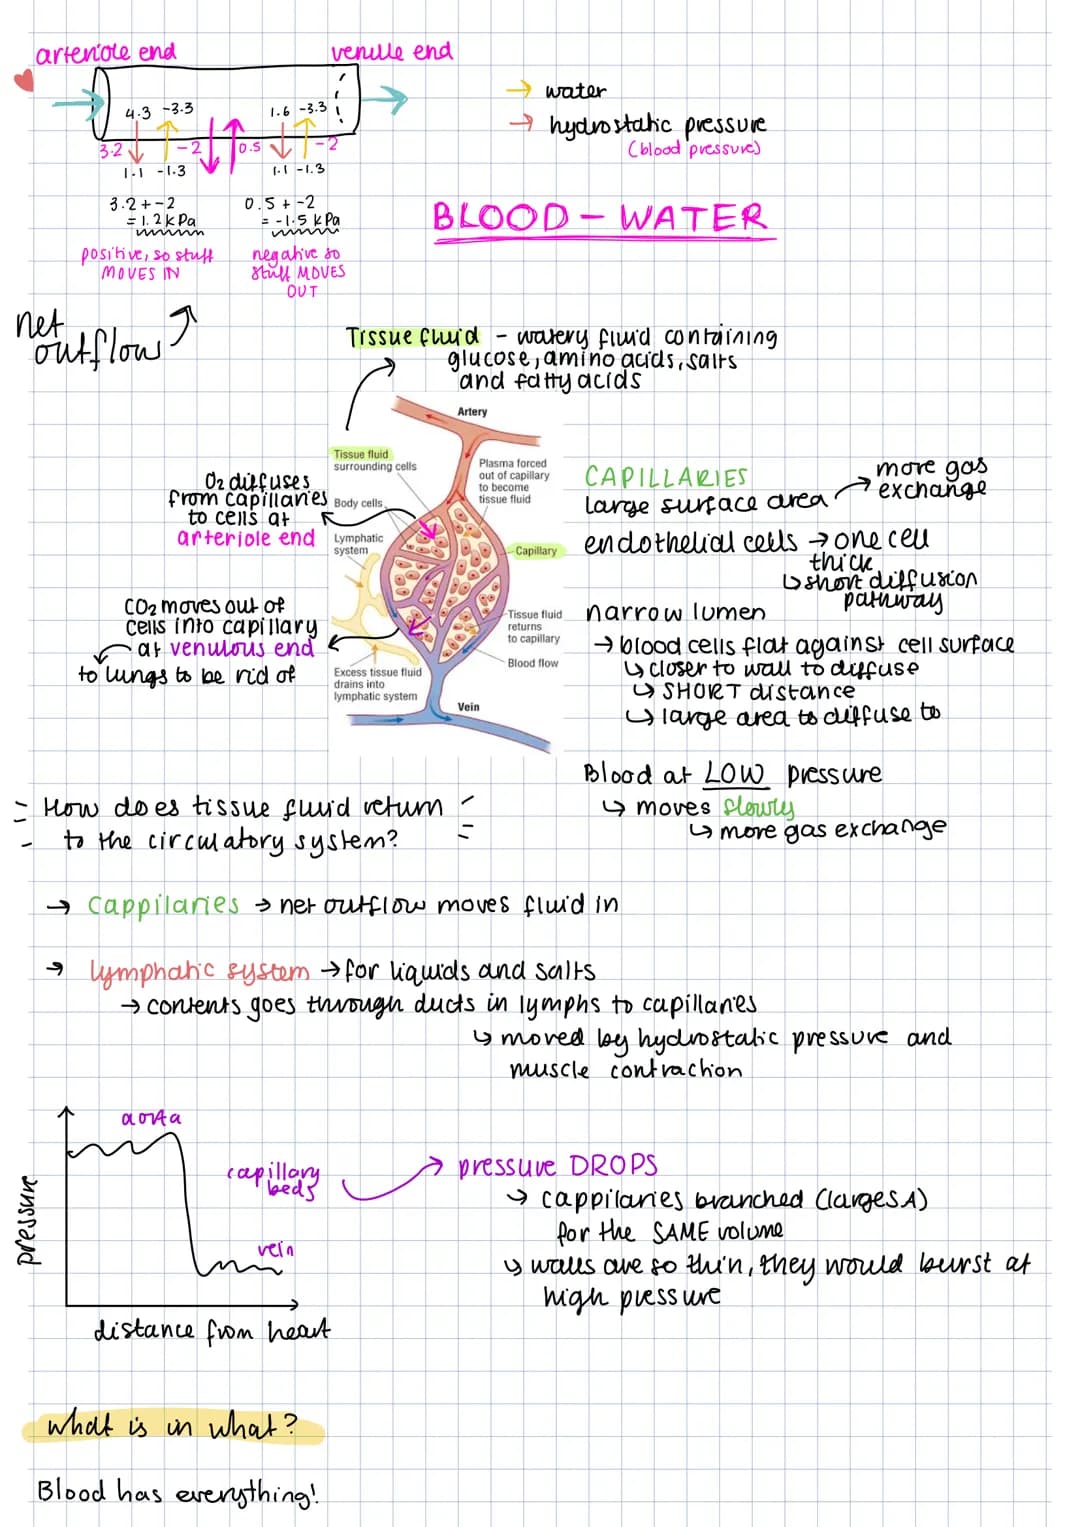 arteriole end
venule end
4.3 -3.3
1.6 -3.3
3.2
-2
0.5
-2
1.1 -1.3
1.1 -1.3
3.2 + -2
= 1.2 kPa
positive, so stuff
MOVES IN
0.5 + -2
= -1.5 kPa
negative so
stuff MOVES
OUT
→ water
→ hydrostatic pressure
(blood pressure)
BLOOD - WATER
net
outflow
Tissue fluid - watery fluid containing
glucose, amino acids, salts
and fatty acids
Artery
Tissue fluid
surrounding cells
Plasma forced
out of capillary
to become
tissue fluid
Body cells
Lymphatic
system
Capillary
Tissue fluid
returns
to capillary
Blood flow
Excess tissue fluid
drains into
lymphatic system
Vein
O2 diffuses
from capillaries
to cells at
arteriole end
CO2 moves out of
cells into capillary
at venulous end
to lungs to be rid of
CAPILLARIES
large surface area → more gas
exchange
endothelial cells → one cell
thick
↳ short diffusion
pathway
narrow lumen
→ blood cells flat against cell surface
↳ closer to wall to diffuse
↳ SHORT distance
↳ large area to diffuse to
Blood at LOW pressure
↳ moves slowly
↳ more gas exchange
How does tissue fluid return
to the circulatory system?
→ cappilaries → net outflow moves fluid in
→ lymphatic system → for liquids and salts
→ contents goes through ducts in lymphs to capillaries
↳ moved by hydrostatic pressure and
muscle contraction
aorta
capillary
beds
vein
pressure
distance from heart
→ pressure DROPS
↳ cappilaries branched (large SA)
for the SAME volume
↳ walls are so thin, they would burst at
high pressure
what is in what?
Blood has everything!